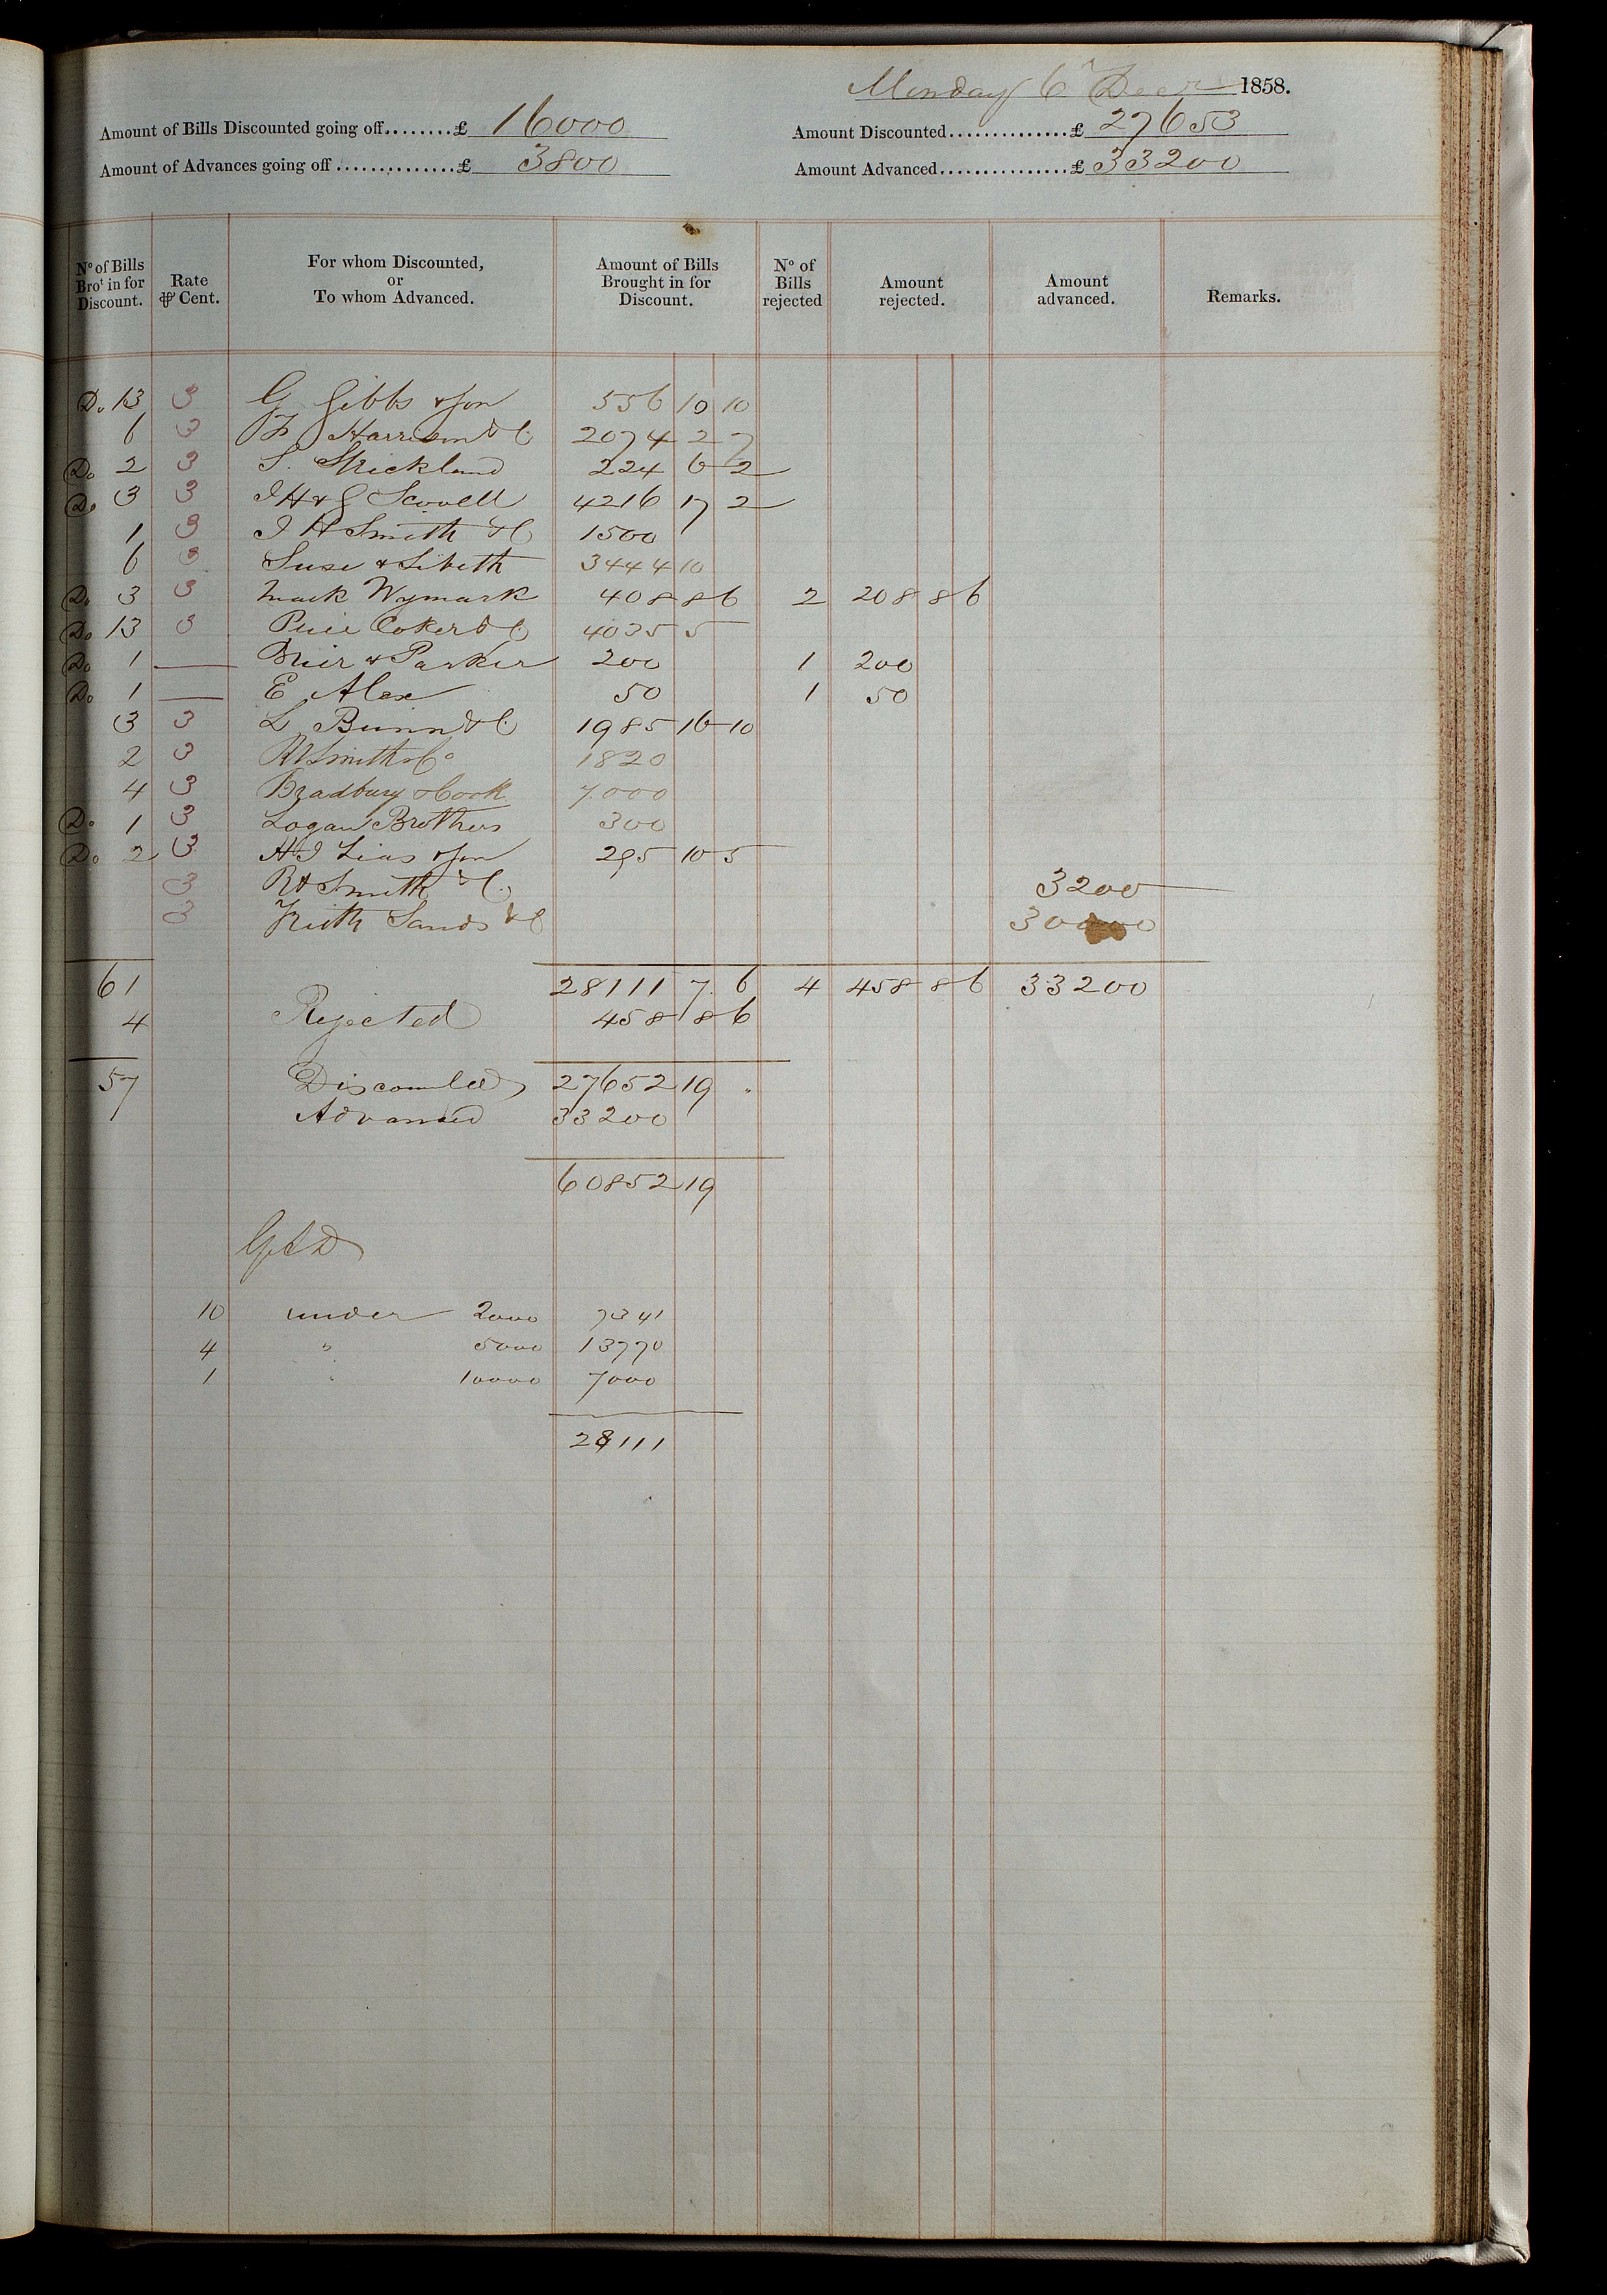 Monday 6th Decr 1858.
Amount of Bills Discounted going off........£ 16000 Amount Discounted..............£ 27653
Amount of Advances going off..............£ 3800 Amount Advanced...............£ 33200
No of Bills Brot in for Discount. Rate ⅌ Cent. For whom Discounted, or To whom Advanced. Amount of Bills Brought in for Discount. No of Bills rejected Amount rejected. Amount advanced. Remarks.
Do 13 3 G Gibbs & Son 556 10 10
6 3 Harrison & C 2074 2 7
Do 2 3 S. Strickland 224 6 2
Do 3 3 J H & G Scovell 4216 17 2
1 3 J H Smith & C 1500
6 3 Suse & Sibeth 3444 10
Do 3 3 Mark Wymark 408 8 6 2 208 8 6
Do 13 3 Price Coker & C 4035 5
Do 1 — & Parker 200 1 200
Do 1 — E Alex 50 1 50
3 3 L Bunn & C 1985 16 10
2 3 Smith & Co 1820
4 3 Bradbury & Cook 7000
Do 1 3 Logan Brothers 300
Do 2 3 H J Lias & Son 295 10 5
3 Smith & C 3200
3 Frith Sands & C 30000
61 28111 7 6 4 458 8 6 33200
4 Rejected 458 8 6
57 Discounted 27652 19 "
Advanced 33200
60852 19
10 under 2000 7341
4 " 5000 13770
1 " 10000 7000
28111